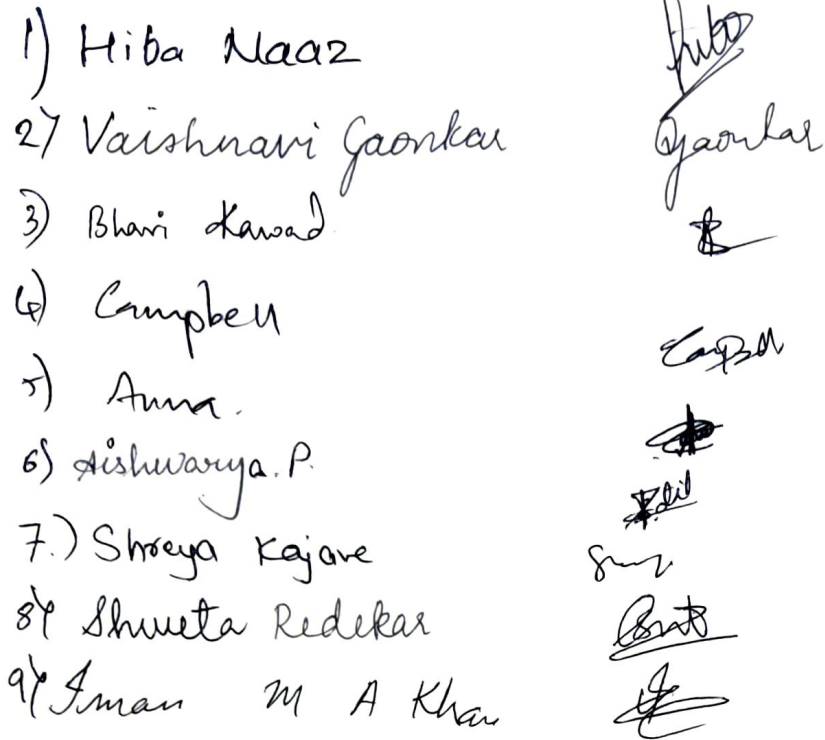 1) Hiba Naaz Hiba
2) Vaishnavi Gaonkar Gaonkar
3) Bhavi Kawad
4) Campbell Campbell
5) Anna.
6) Aishwarya. P.
7.) Shreya Kajave
8) Shweta Redekar
9) Iman M A Khan